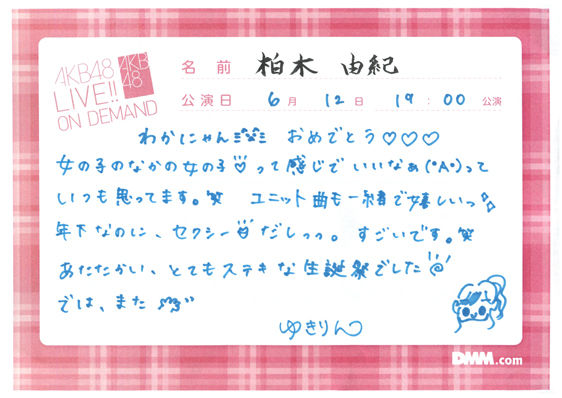 AKB48
LIVE!!
ON DEMAND
AKB
48
名 前 柏木 由紀
公演日 6月 12日 19:00 公演
わかにゃん おめでとう♡♡♡
女の子のなかの女の子♡って感じでいいなぁ(°A°)って
いつも思ってます。笑 ユニット曲も一緒で嬉しいっ
年下なのに、セクシーだしっっ。すごいです。笑
あたたかい、とてもステキな生誕祭でした
では、また
ゆきりん
DMM.com